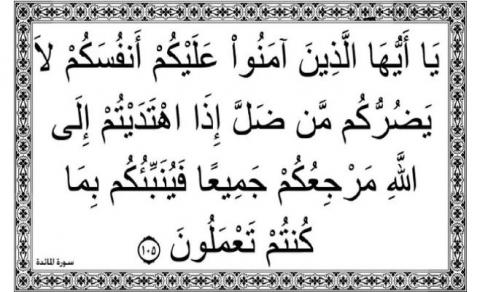 يَا أَيُّهَا الَّذِينَ آمَنُواْ عَلَيْكُمْ أَنفُسَكُمْ لاَ
يَضُرُّكُم مَّن ضَلَّ إِذَا اهْتَدَيْتُمْ إِلَى
اللَّهِ مَرْجِعُكُمْ جَمِيعًا فَيُنَبِّئُكُم بِمَا
كُنتُمْ تَعْمَلُونَ ﴿١٠٥﴾
سورة المائدة